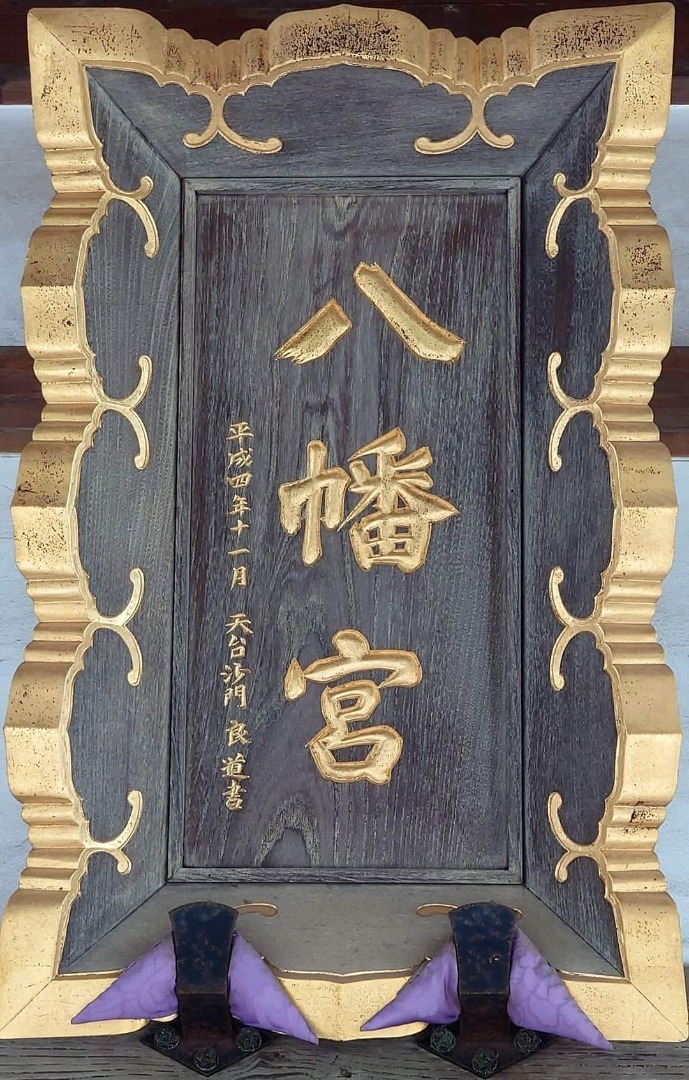 八幡宮
平成四年十一月 天台沙門 良道書